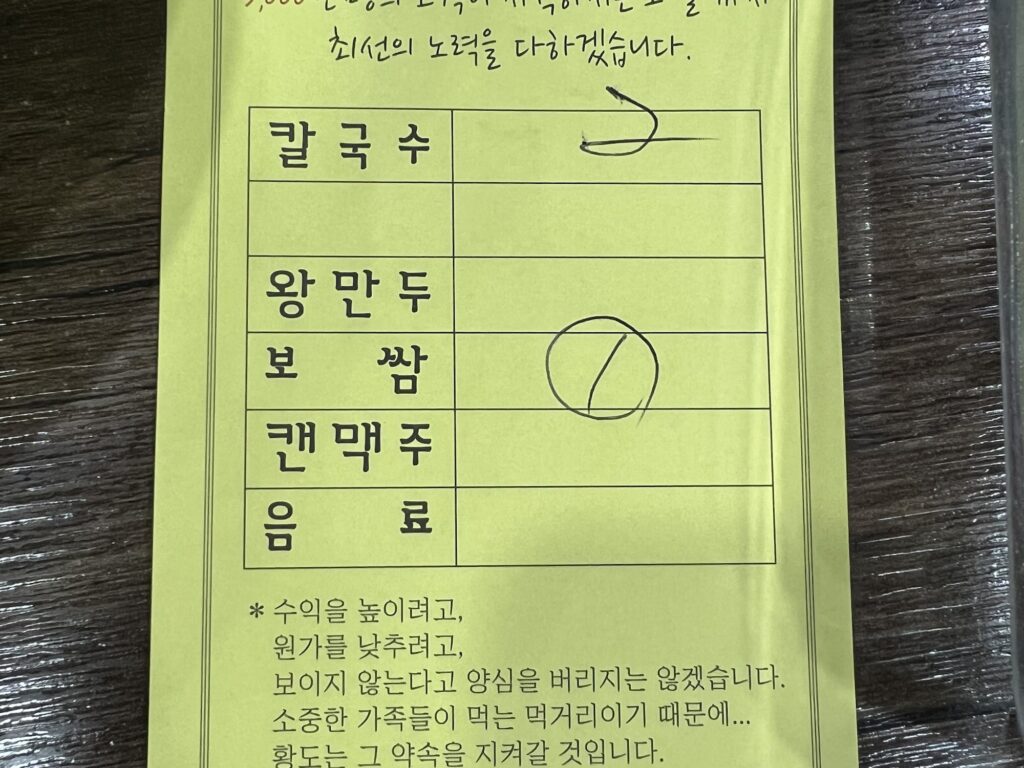 최선의 노력을 다하겠습니다.
칼국수 2
왕만두
보쌈 1
캔맥주
음료
* 수익을 높이려고,
원가를 낮추려고,
보이지 않는다고 양심을 버리지는 않겠습니다.
소중한 가족들이 먹는 먹거리이기 때문에...
황도는 그 약속을 지켜갈 것입니다.